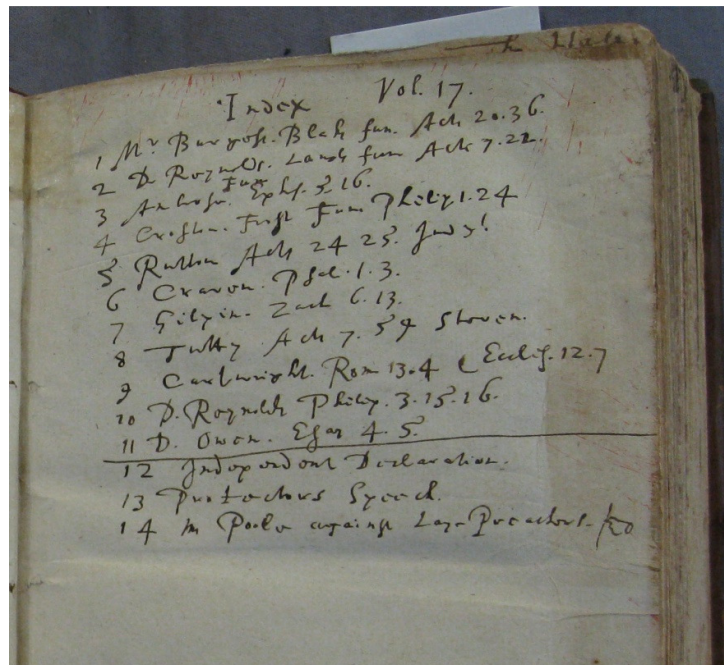 Index Vol. 17.
1 Mr Burgess. Blak fun. Acts 20.36.
2 D. Reynolds. Langly fun Acts 7.22.
3 Ambrose. Fun Ephes. 5.16.
4 Crofton. First Fun Philip. 1.24
5 Rutton Acts 24 25.
6 Craven. Psal. 1.3.
7 Gilpin. Zach 6.13.
8 Tully Acts 7.59 Steven.
9 Cartwright. Rom 13.4 Eccles. 12.7
10 D. Reynolds Philip. 3.15.16.
11 D. Owen. Esay 4.5.
12 Independent Declaration.
13 Protectors Speech.
14 m Poole against Lay-Preachers.